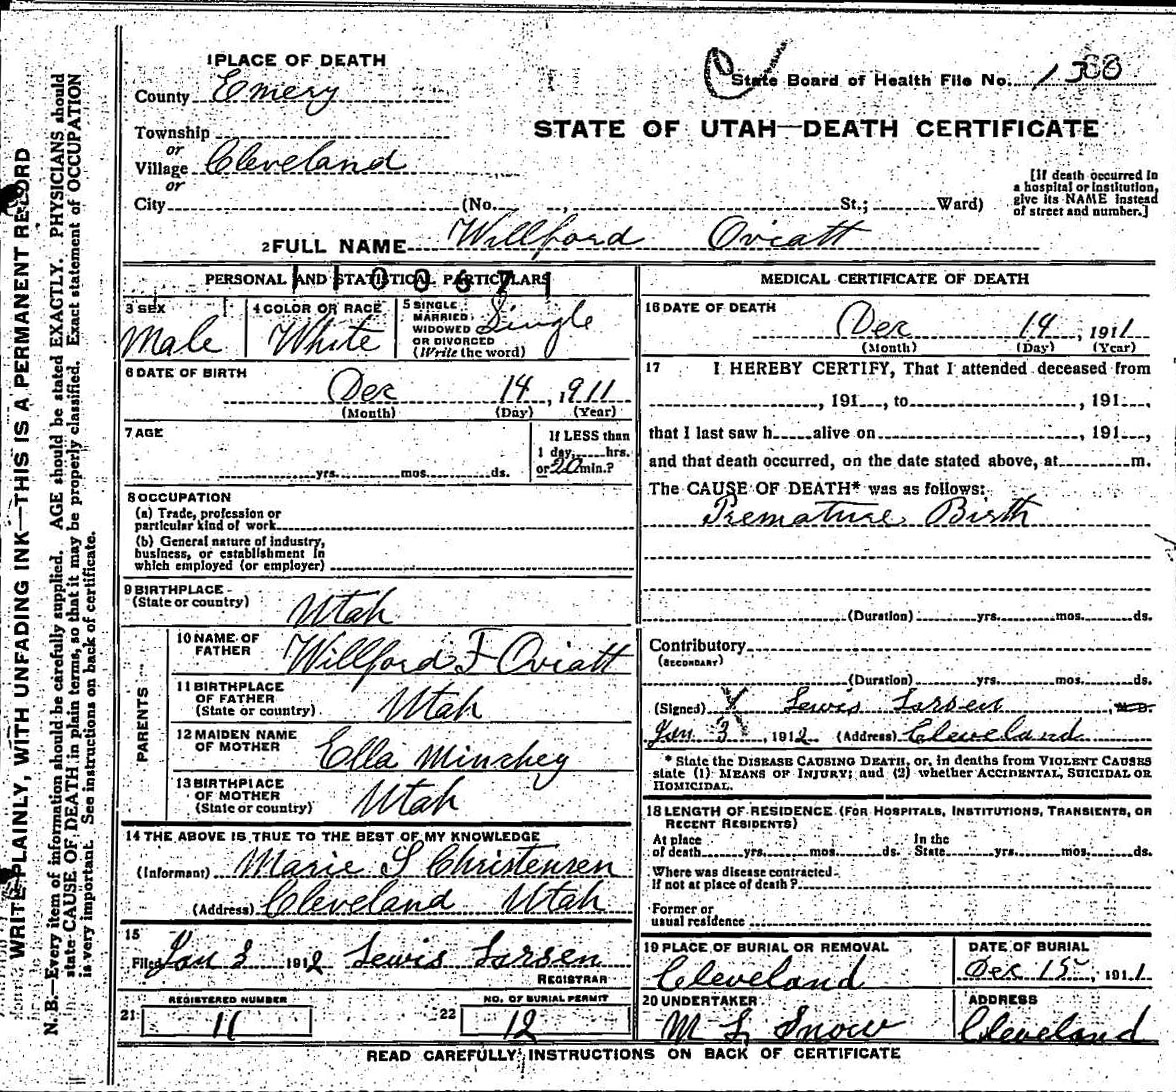 WRITE PLAINLY, WITH UNFADING INK—THIS IS A PERMANENT RECORD
N. B.—Every item of information should be carefully supplied. AGE should be stated EXACTLY. PHYSICIANS should
state CAUSE OF DEATH in plain terms, so that it may be properly classified. Exact statement of OCCUPATION
is very important. See instructions on back of certificate.
1 PLACE OF DEATH
County Emery
State Board of Health File No.
STATE OF UTAH—DEATH CERTIFICATE
Township
or
Village Cleveland
or
City (No. , St.; Ward)
[If death occurred in
a hospital or institution,
give its NAME instead
of street and number.]
2 FULL NAME Willford Oviatt
PERSONAL AND STATISTICAL PARTICULARS
1100671
3 SEX
Male
4 COLOR OR RACE
White
5 SINGLE
MARRIED
WIDOWED
OR DIVORCED
(Write the word)
Single
6 DATE OF BIRTH
Dec 14, 1911
(Month) (Day) (Year)
7 AGE
yrs. mos. ds.
If LESS than
1 day, hrs.
or 20 min.?
8 OCCUPATION
(a) Trade, profession or
particular kind of work
(b) General nature of industry,
business, or establishment in
which employed (or employer)
9 BIRTHPLACE
(State or country)
Utah
PARENTS
10 NAME OF
FATHER
Willford F Oviatt
11 BIRTHPLACE
OF FATHER
(State or country)
Utah
12 MAIDEN NAME
OF MOTHER
Ella Minchey
13 BIRTHPLACE
OF MOTHER
(State or country)
Utah
14 THE ABOVE IS TRUE TO THE BEST OF MY KNOWLEDGE
(Informant) Marie S Christensen
(Address) Cleveland Utah
15
Filed Jan 3 1912 Lewis Larsen
REGISTRAR
REGISTERED NUMBER
21 11
NO. OF BURIAL PERMIT
22 12
MEDICAL CERTIFICATE OF DEATH
16 DATE OF DEATH
Dec 14, 1911
(Month) (Day) (Year)
17 I HEREBY CERTIFY, That I attended deceased from
, 191 , to , 191 ,
that I last saw h alive on , 191 ,
and that death occurred, on the date stated above, at m.
The CAUSE OF DEATH* was as follows:
Premature Birth
(Duration) yrs. mos. ds.
Contributory
(SECONDARY)
(Duration) yrs. mos. ds.
(Signed) X Lewis Larsen, M.D.
Jan 3, 1912 (Address) Cleveland
* State the DISEASE CAUSING DEATH, or, in deaths from VIOLENT CAUSES
state (1) MEANS OF INJURY; and (2) whether ACCIDENTAL, SUICIDAL OR
HOMICIDAL.
18 LENGTH OF RESIDENCE (FOR HOSPITALS, INSTITUTIONS, TRANSIENTS, OR
RECENT RESIDENTS)
At place
of death yrs. mos. ds.
In the
State yrs. mos. ds.
Where was disease contracted
If not at place of death?
Former or
usual residence
19 PLACE OF BURIAL OR REMOVAL
Cleveland
DATE OF BURIAL
Dec 15, 1911
20 UNDERTAKER
M L Snow
ADDRESS
Cleveland
READ CAREFULLY INSTRUCTIONS ON BACK OF CERTIFICATE